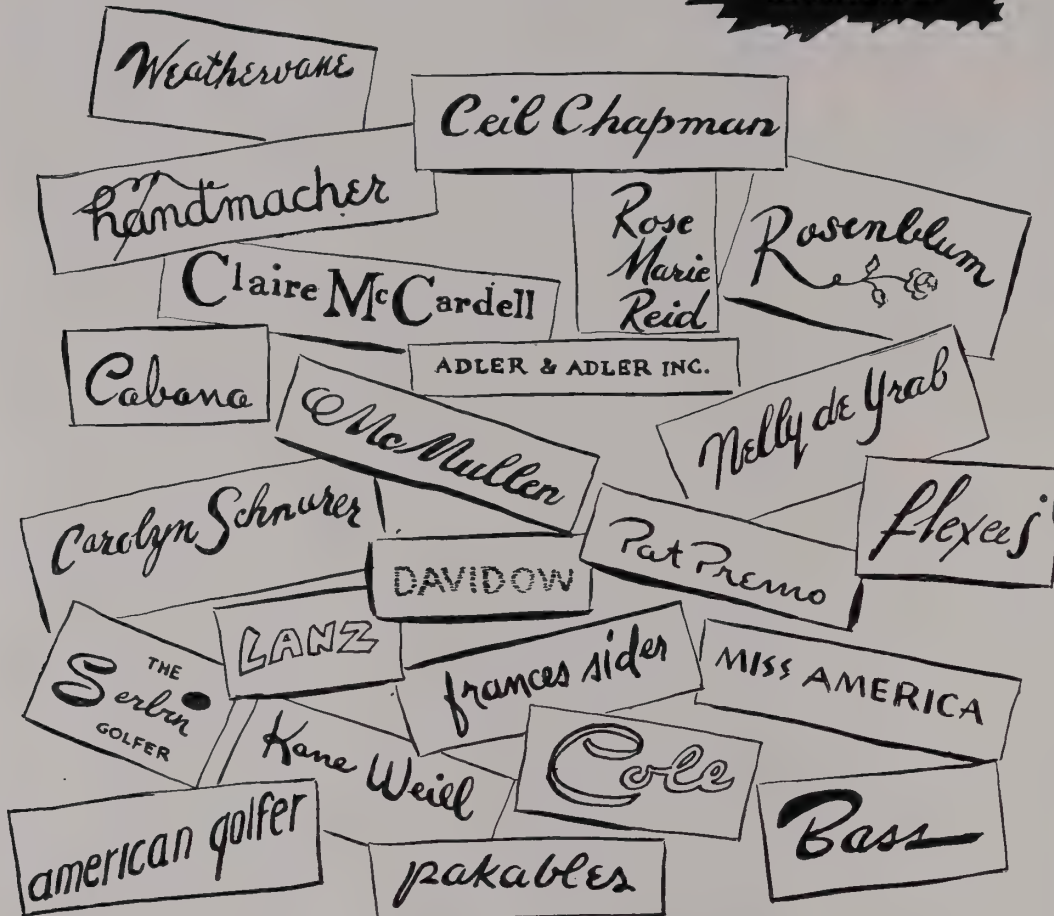 Weathervane
Ceil Chapman
handmacher
Rose
Marie
Reid
Rosenblum
Claire McCardell
Cabana
ADLER & ADLER INC.
McMullen
Nelly de Grab
Carolyn Schnurer
flexees
DAVIDOW
Pat Premo
THE
Serbin
GOLFER
LANZ
frances sider
MISS AMERICA
Kane Weill
Cole
american golfer
pakables
Bass